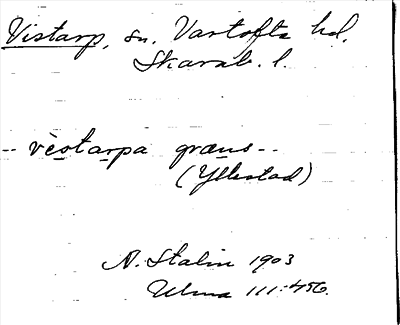 Vistarp, sn. Vartofta hd.
Skarab. l.
-- vèstarpa græns --
(Yllestad)
A. Stalin 1903
Ulma 111:456.